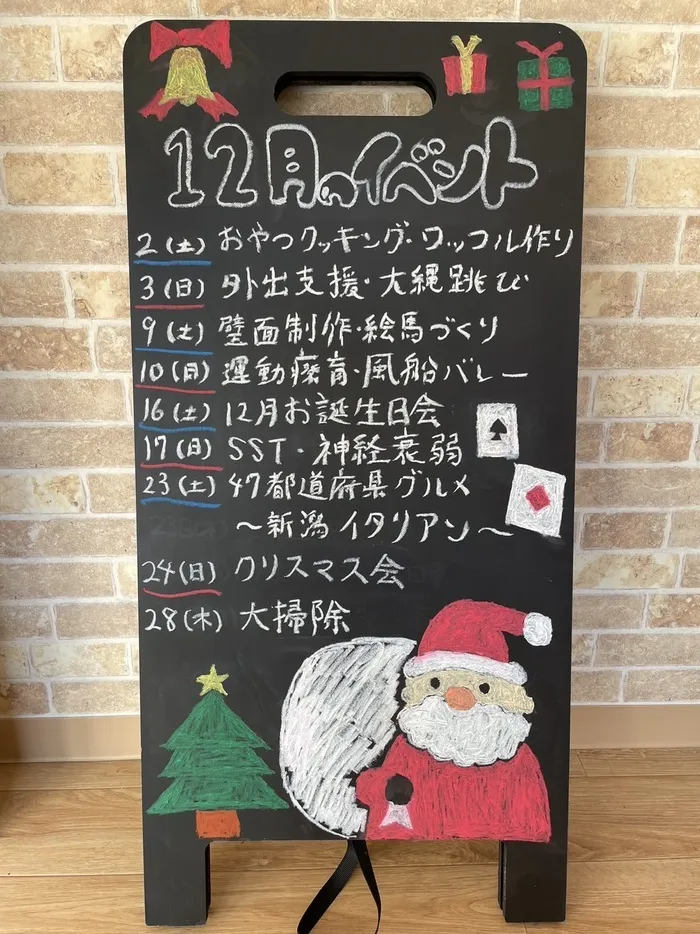 12月のイベント
2(土) おやつクッキング・ワッフル作り
3(日) 外出支援・大縄跳び
9(土) 壁面制作・絵馬づくり
10(日) 運動療育・風船バレー
16(土) 12月お誕生日会
17(日) SST・神経衰弱
23(土) 47都道府県グルメ
〜新潟イタリアン〜
24(日) クリスマス会
28(木) 大掃除